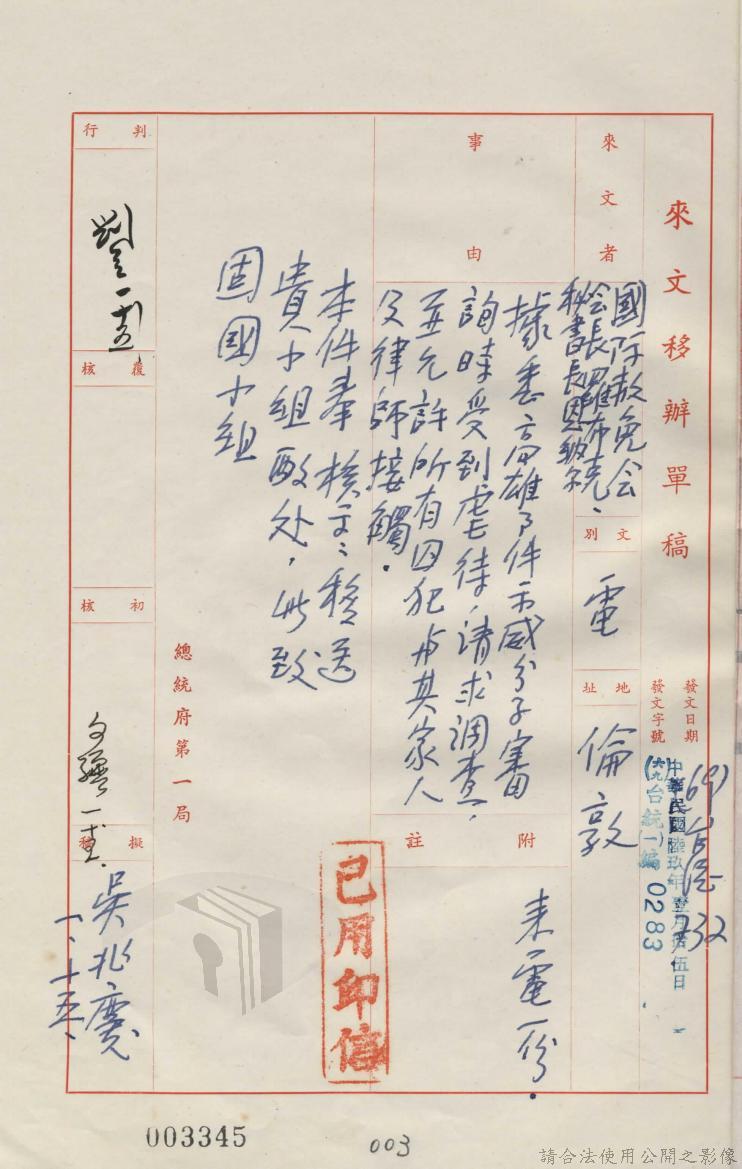 來文移辦單稿
發文日期
中華民國陸玖年壹月拾伍日
發文字號
(六九)台統(一)編 0283
來文者
國际赦免会
会長羅布克、
秘書長恩納尔
文別
電
地址
倫敦
事由
據悉高雄事件示威分子審
詢時受到虐待,請求調查,
並允許所有囚犯与其家人
及律師接觸.
附註
来電一份.
本件奉核示:移送
貴小組酌处,此致
固國小組
總統府第一局
判行
覆核
初核
擬稿
吳兆慶
一、十五、
已用印信
003345
003
請合法使用公開之影像